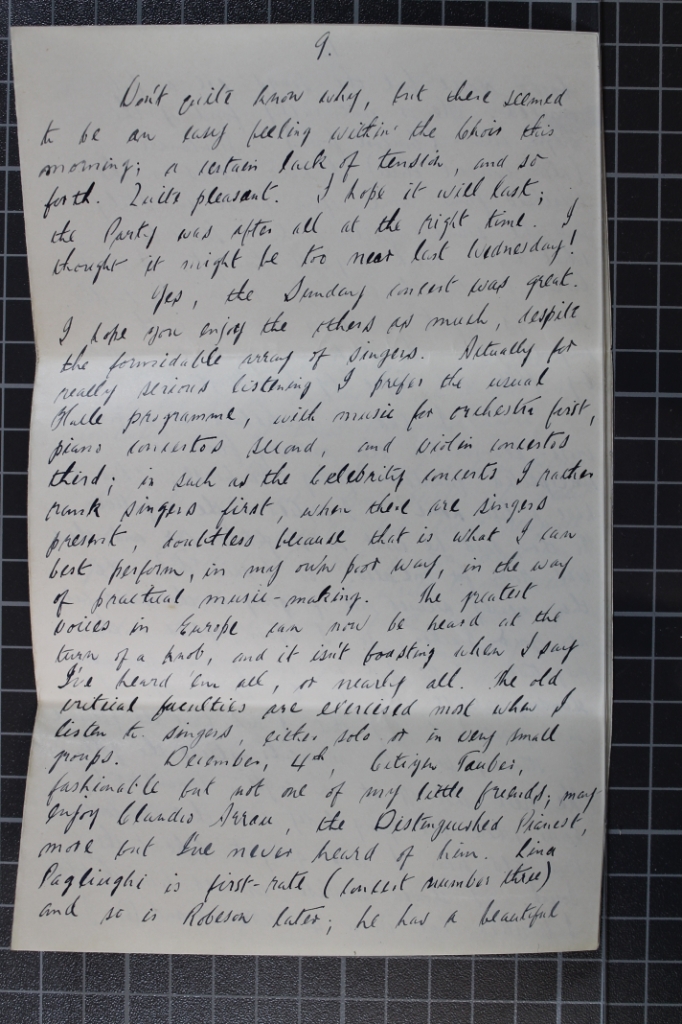 9.
Don't quite know why, but there seemed
to be an easy feeling within the Choir this
morning; a certain lack of tension, and so
forth. Quite pleasant. I hope it will last;
the Party was after all at the right time. I
thought it might be too near last Wednesday!
Yes, the Sunday concert was great.
I hope you enjoy the others as much, despite
the formidable array of singers. Actually for
really serious listening I prefer the usual
Halle programme, with music for orchestra first,
piano concertos second, and violin concertos
third; in such as the Celebrity concerts I rather
rank singers first, when there are singers
present, doubtless because that is what I can
best perform, in my own poor way, in the way
of practical music-making. The greatest
voices in Europe can now be heard at the
turn of a knob, and it isn't boasting when I say
I've heard 'em all, or nearly all. The old
critical faculties are exercised most when I
listen to singers, either solo or in very small
groups. December, 4th, Citizen Tauber,
fashionable but not one of my little friends; may
enjoy Claudio Arrau, the Distinguished Pianist,
more but I've never heard of him. Lina
Pagliughi is first-rate (concert number three)
and so is Robeson later; he has a beautiful